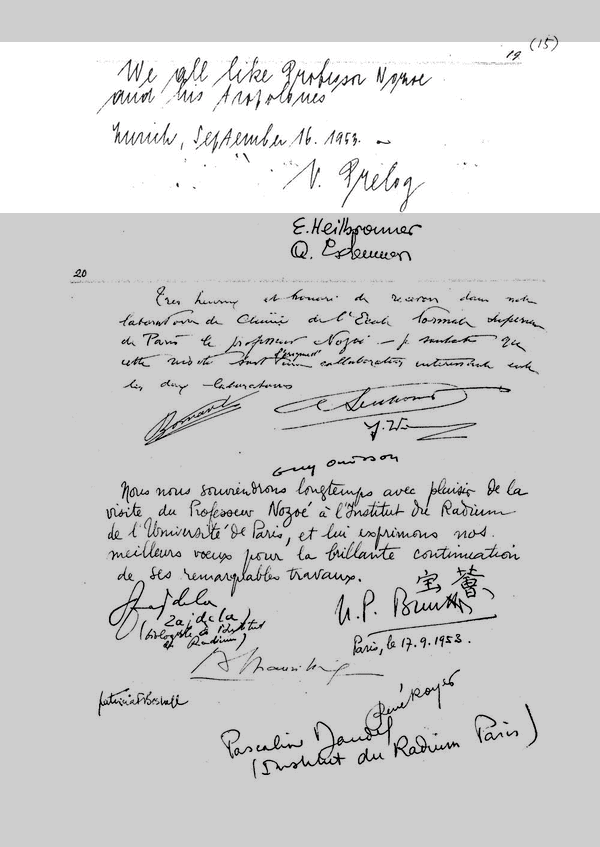 (15)
19
We all like Professor Nozoe
and his tropolones
Zurich, September 16. 1953.
V. Prelog
E. Heilbronner
20
Très heureux et honoré de recevoir dans notre
laboratoire de Chimie de l'Ecole Normale Supérieure
de Paris le professeur Nozoé - je souhaite que
cette visite soit collaboration intéressante entre
les deux laboratoires
Guy Ourisson
Nous nous souviendrons longtemps avec plaisir de la
visite du Professeur Nozoé à l'Institut du Radium
de l'Université de Paris, et lui exprimons nos
meilleurs vœux pour la brillante continuation
de ses remarquables travaux.
Zajdela
(Zajdela)
(biologiste à l'Institut
du Radium)
宝薈
N.P. Buu
Paris, le 17.9.1953.
René Royer
Pascaline Daudel
(Institut du Radium Paris)